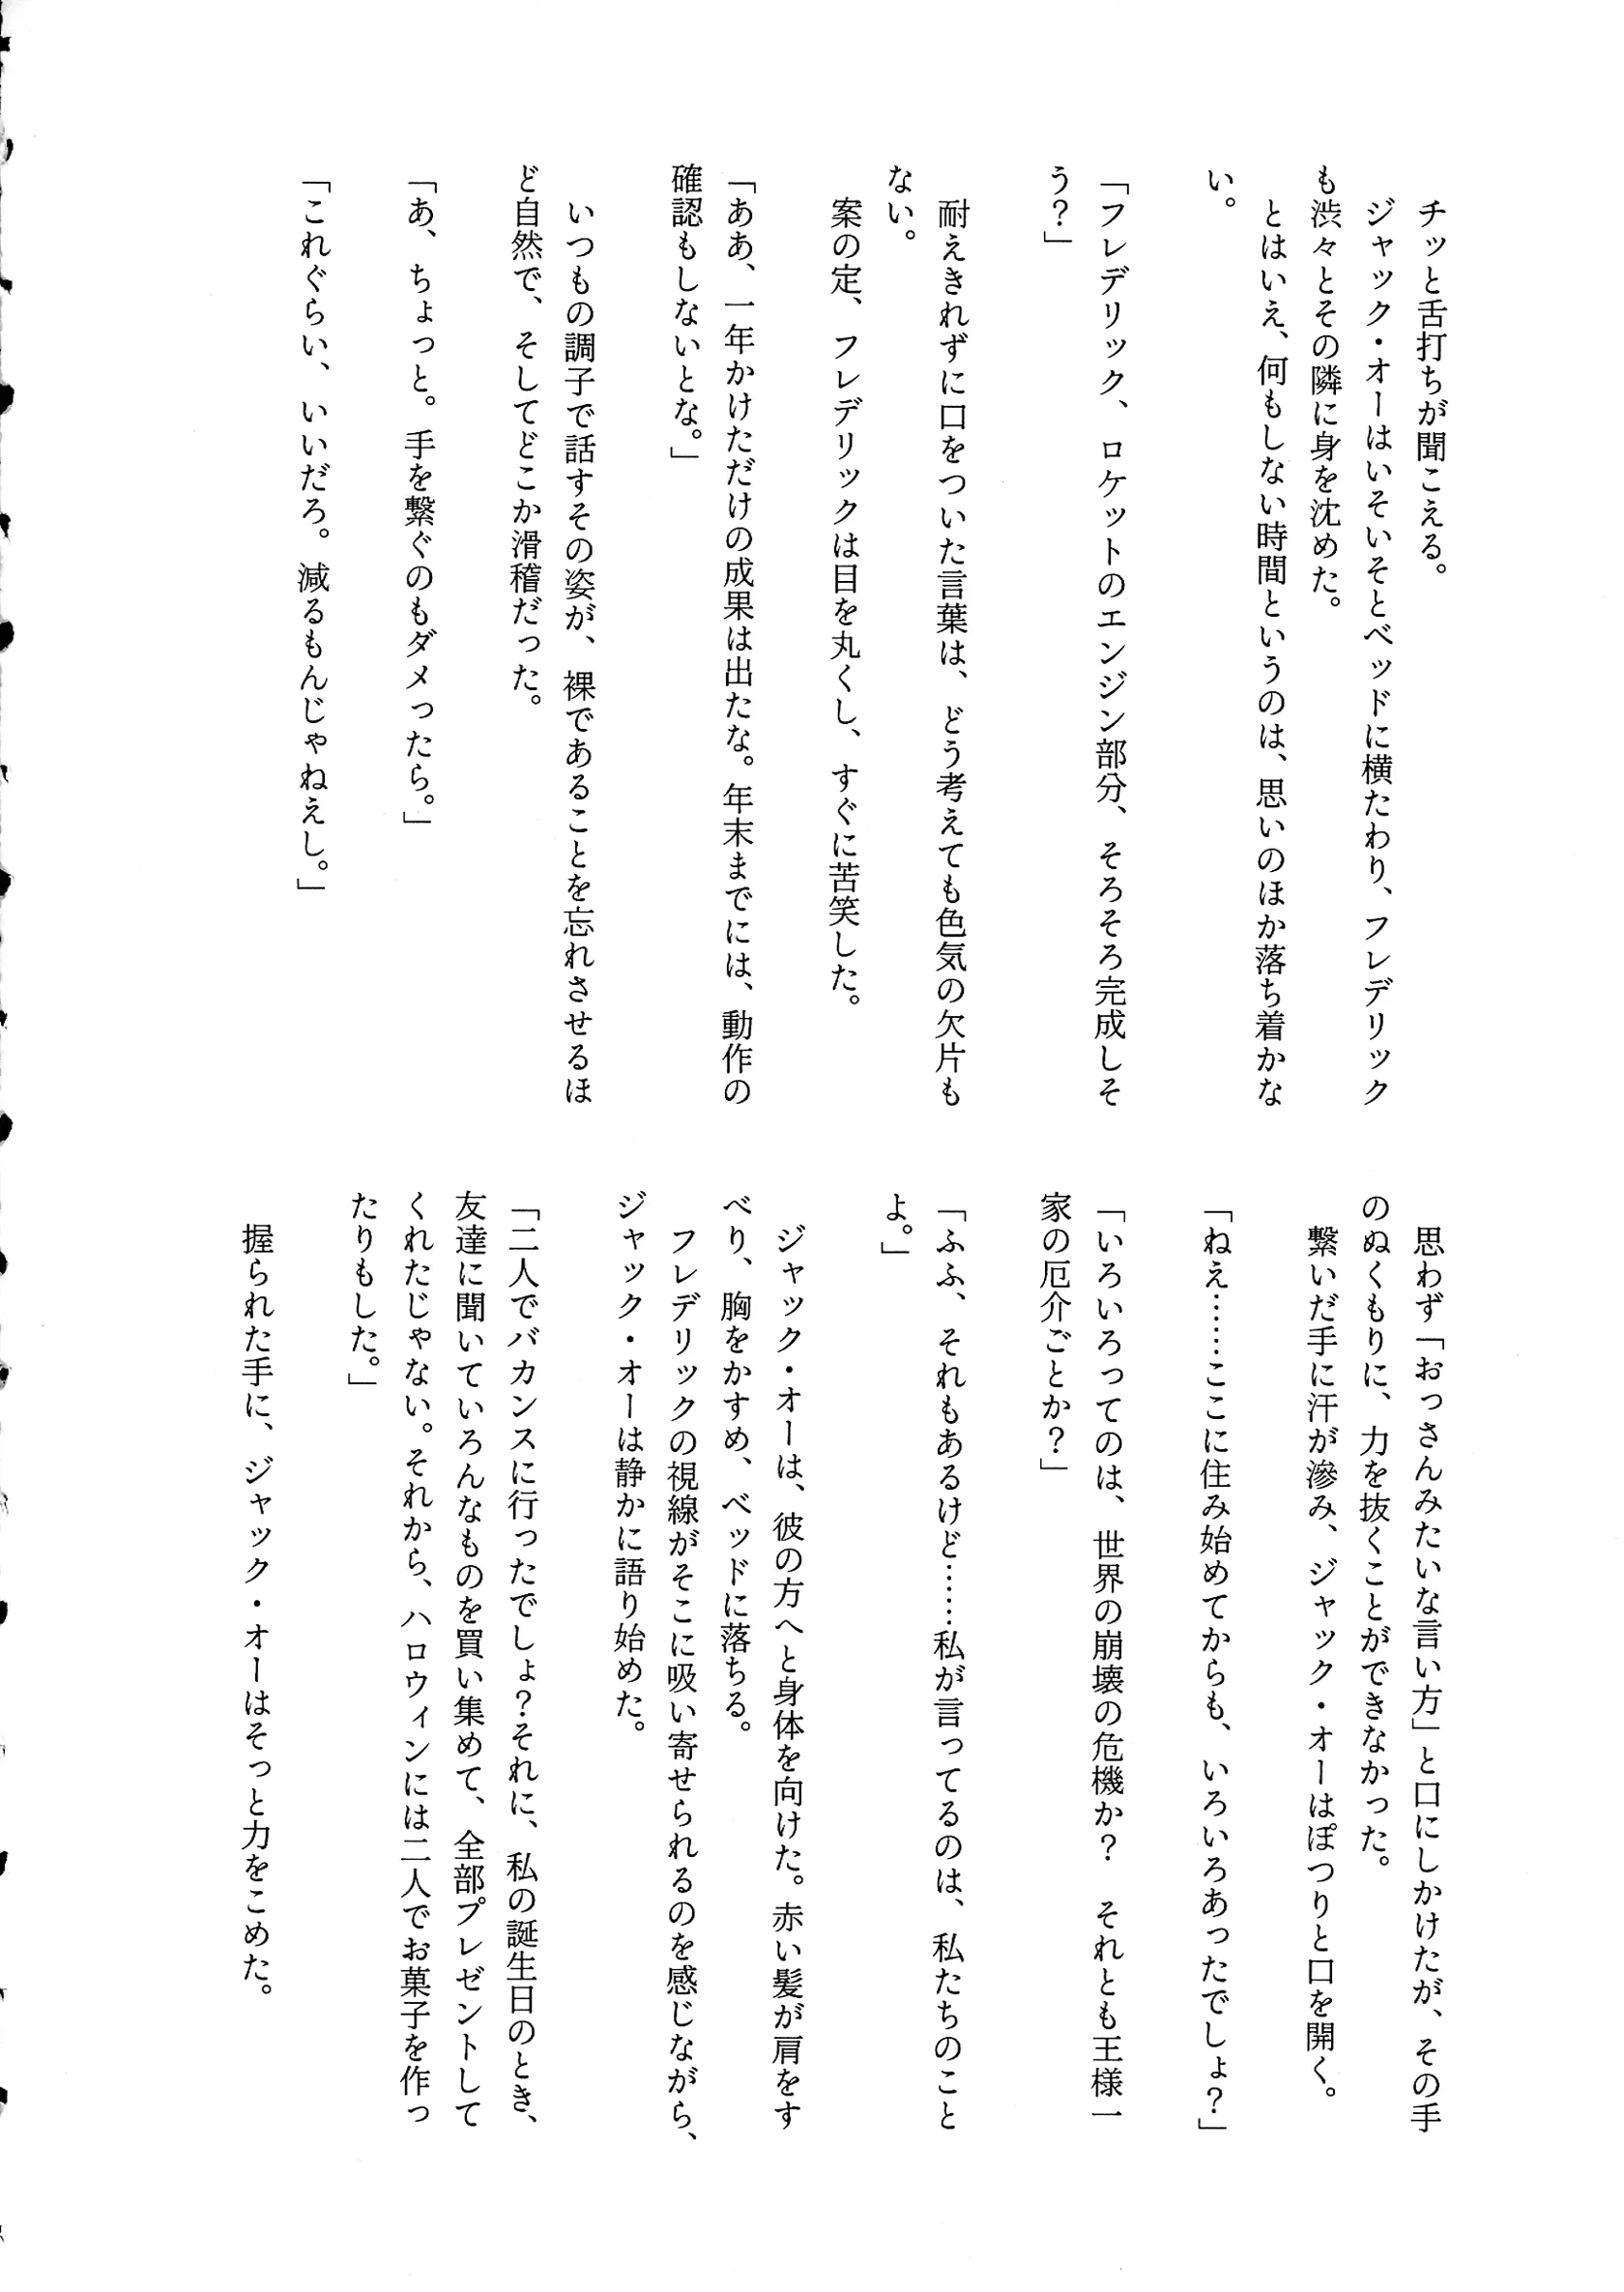 チッと舌打ちが聞こえる。
ジャック・オーはいそいそとベッドに横たわり、フレデリック
も渋々とその隣に身を沈めた。
とはいえ、何もしない時間というのは、思いのほか落ち着かな
い。
「フレデリック、ロケットのエンジン部分、そろそろ完成しそ
う？」
耐えきれずに口をついた言葉は、どう考えても色気の欠片も
ない。
案の定、フレデリックは目を丸くし、すぐに苦笑した。
「ああ、一年かけただけの成果は出たな。年末までには、動作の
確認もしないとな。」
いつもの調子で話すその姿が、裸であることを忘れさせるほ
ど自然で、そしてどこか滑稽だった。
「あ、ちょっと。手を繋ぐのもダメったら。」
「これぐらい、いいだろ。減るもんじゃねえし。」
思わず「おっさんみたいな言い方」と口にしかけたが、その手
のぬくもりに、力を抜くことができなかった。
繋いだ手に汗が滲み、ジャック・オーはぽつりと口を開く。
「ねえ……ここに住み始めてからも、いろいろあったでしょ？」
「いろいろってのは、世界の崩壊の危機か？　それとも王様一
家の厄介ごとか？」
「ふふ、それもあるけど……私が言ってるのは、私たちのこと
よ。」
ジャック・オーは、彼の方へと身体を向けた。赤い髪が肩をす
べり、胸をかすめ、ベッドに落ちる。
フレデリックの視線がそこに吸い寄せられるのを感じながら、
ジャック・オーは静かに語り始めた。
「二人でバカンスに行ったでしょ？それに、私の誕生日のとき、
友達に聞いていろんなものを買い集めて、全部プレゼントして
くれたじゃない。それから、ハロウィンには二人でお菓子を作っ
たりもした。」
握られた手に、ジャック・オーはそっと力をこめた。